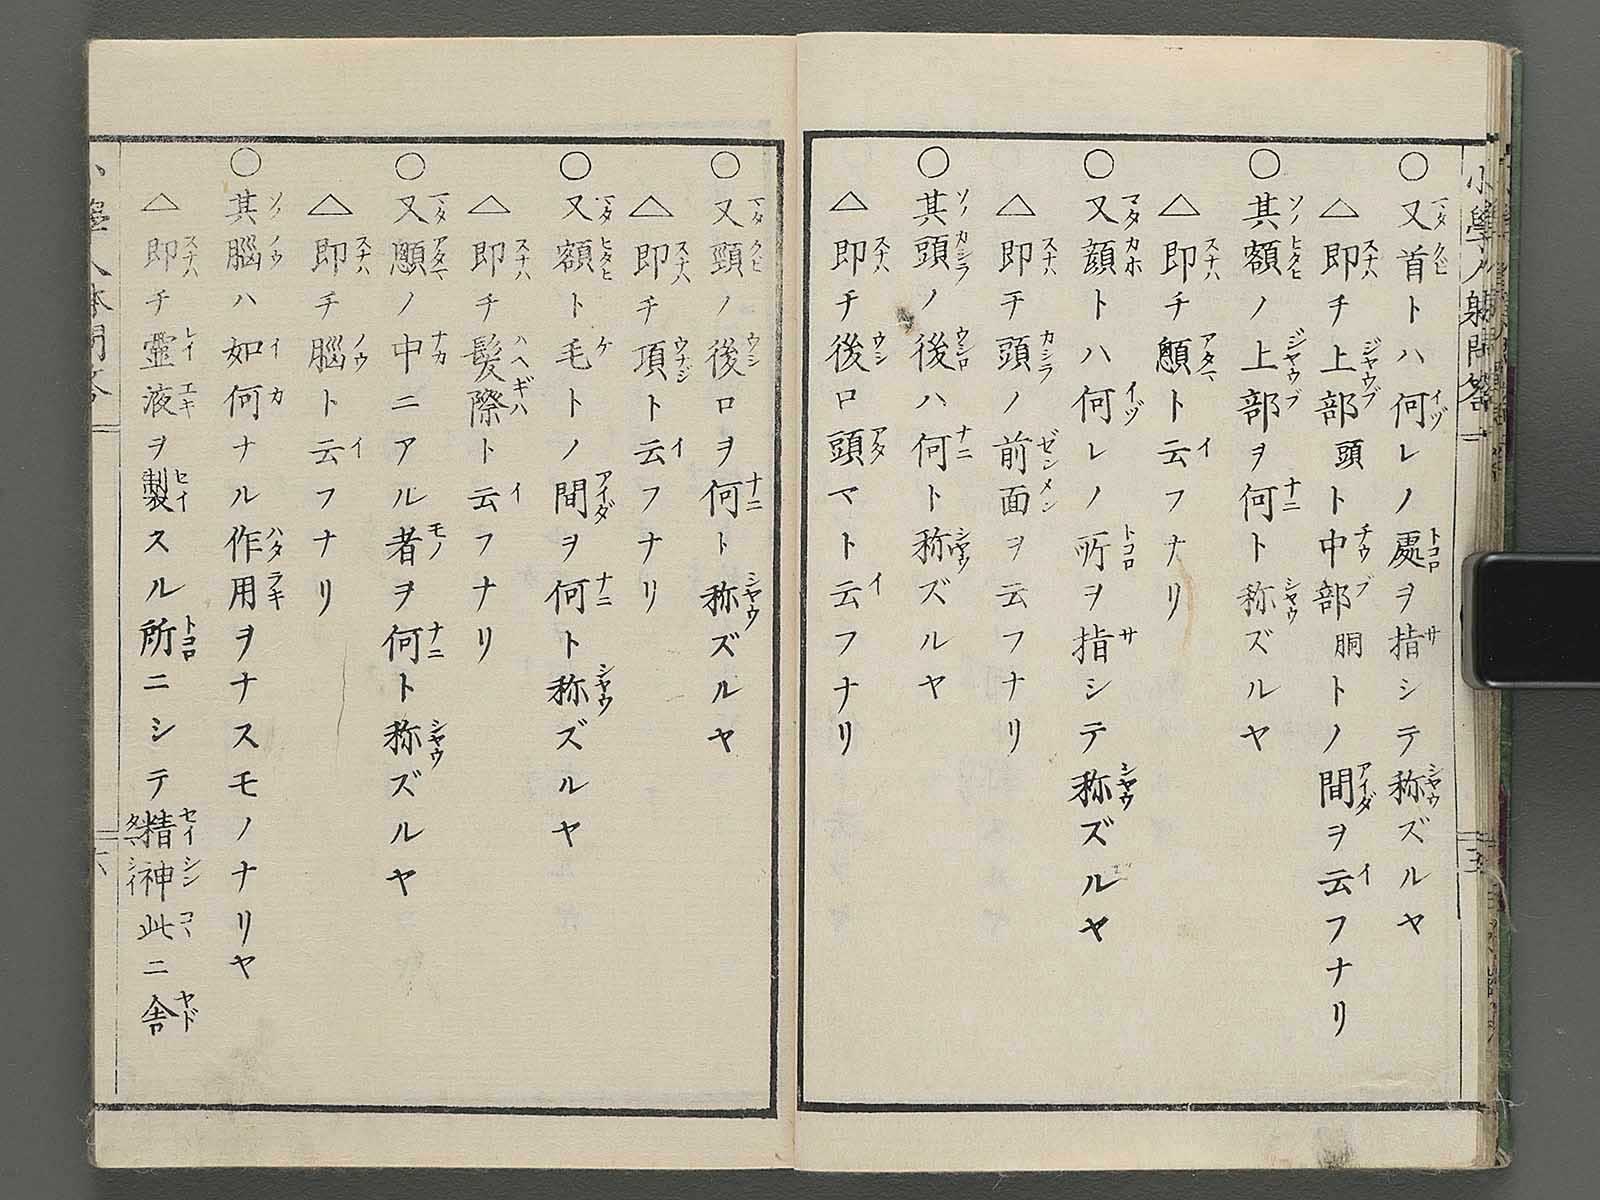 小學人軆問答一
○又首トハ何レノ處ヲ指シテ称ズルヤ
△即チ上部頭ト中部胴トノ間ヲ云フナリ
○其額ノ上部ヲ何ト称ズルヤ
△即チ顖ト云フナリ
○又顔トハ何レノ所ヲ指シテ称ズルヤ
△即チ頭ノ前面ヲ云フナリ
○其頭ノ後ハ何ト称ズルヤ
△即チ後ロ頭マト云フナリ
○又頸ノ後ロヲ何ト称ズルヤ
△即チ項ト云フナリ
○又額ト毛トノ間ヲ何ト称ズルヤ
△即チ髮際ト云フナリ
○又顖ノ中ニアル者ヲ何ト称ズルヤ
△即チ腦ト云フナリ
○其腦ハ如何ナル作用ヲナスモノナリヤ
△即チ靈液ヲ製スル所ニシテ精神此ニ舎
六